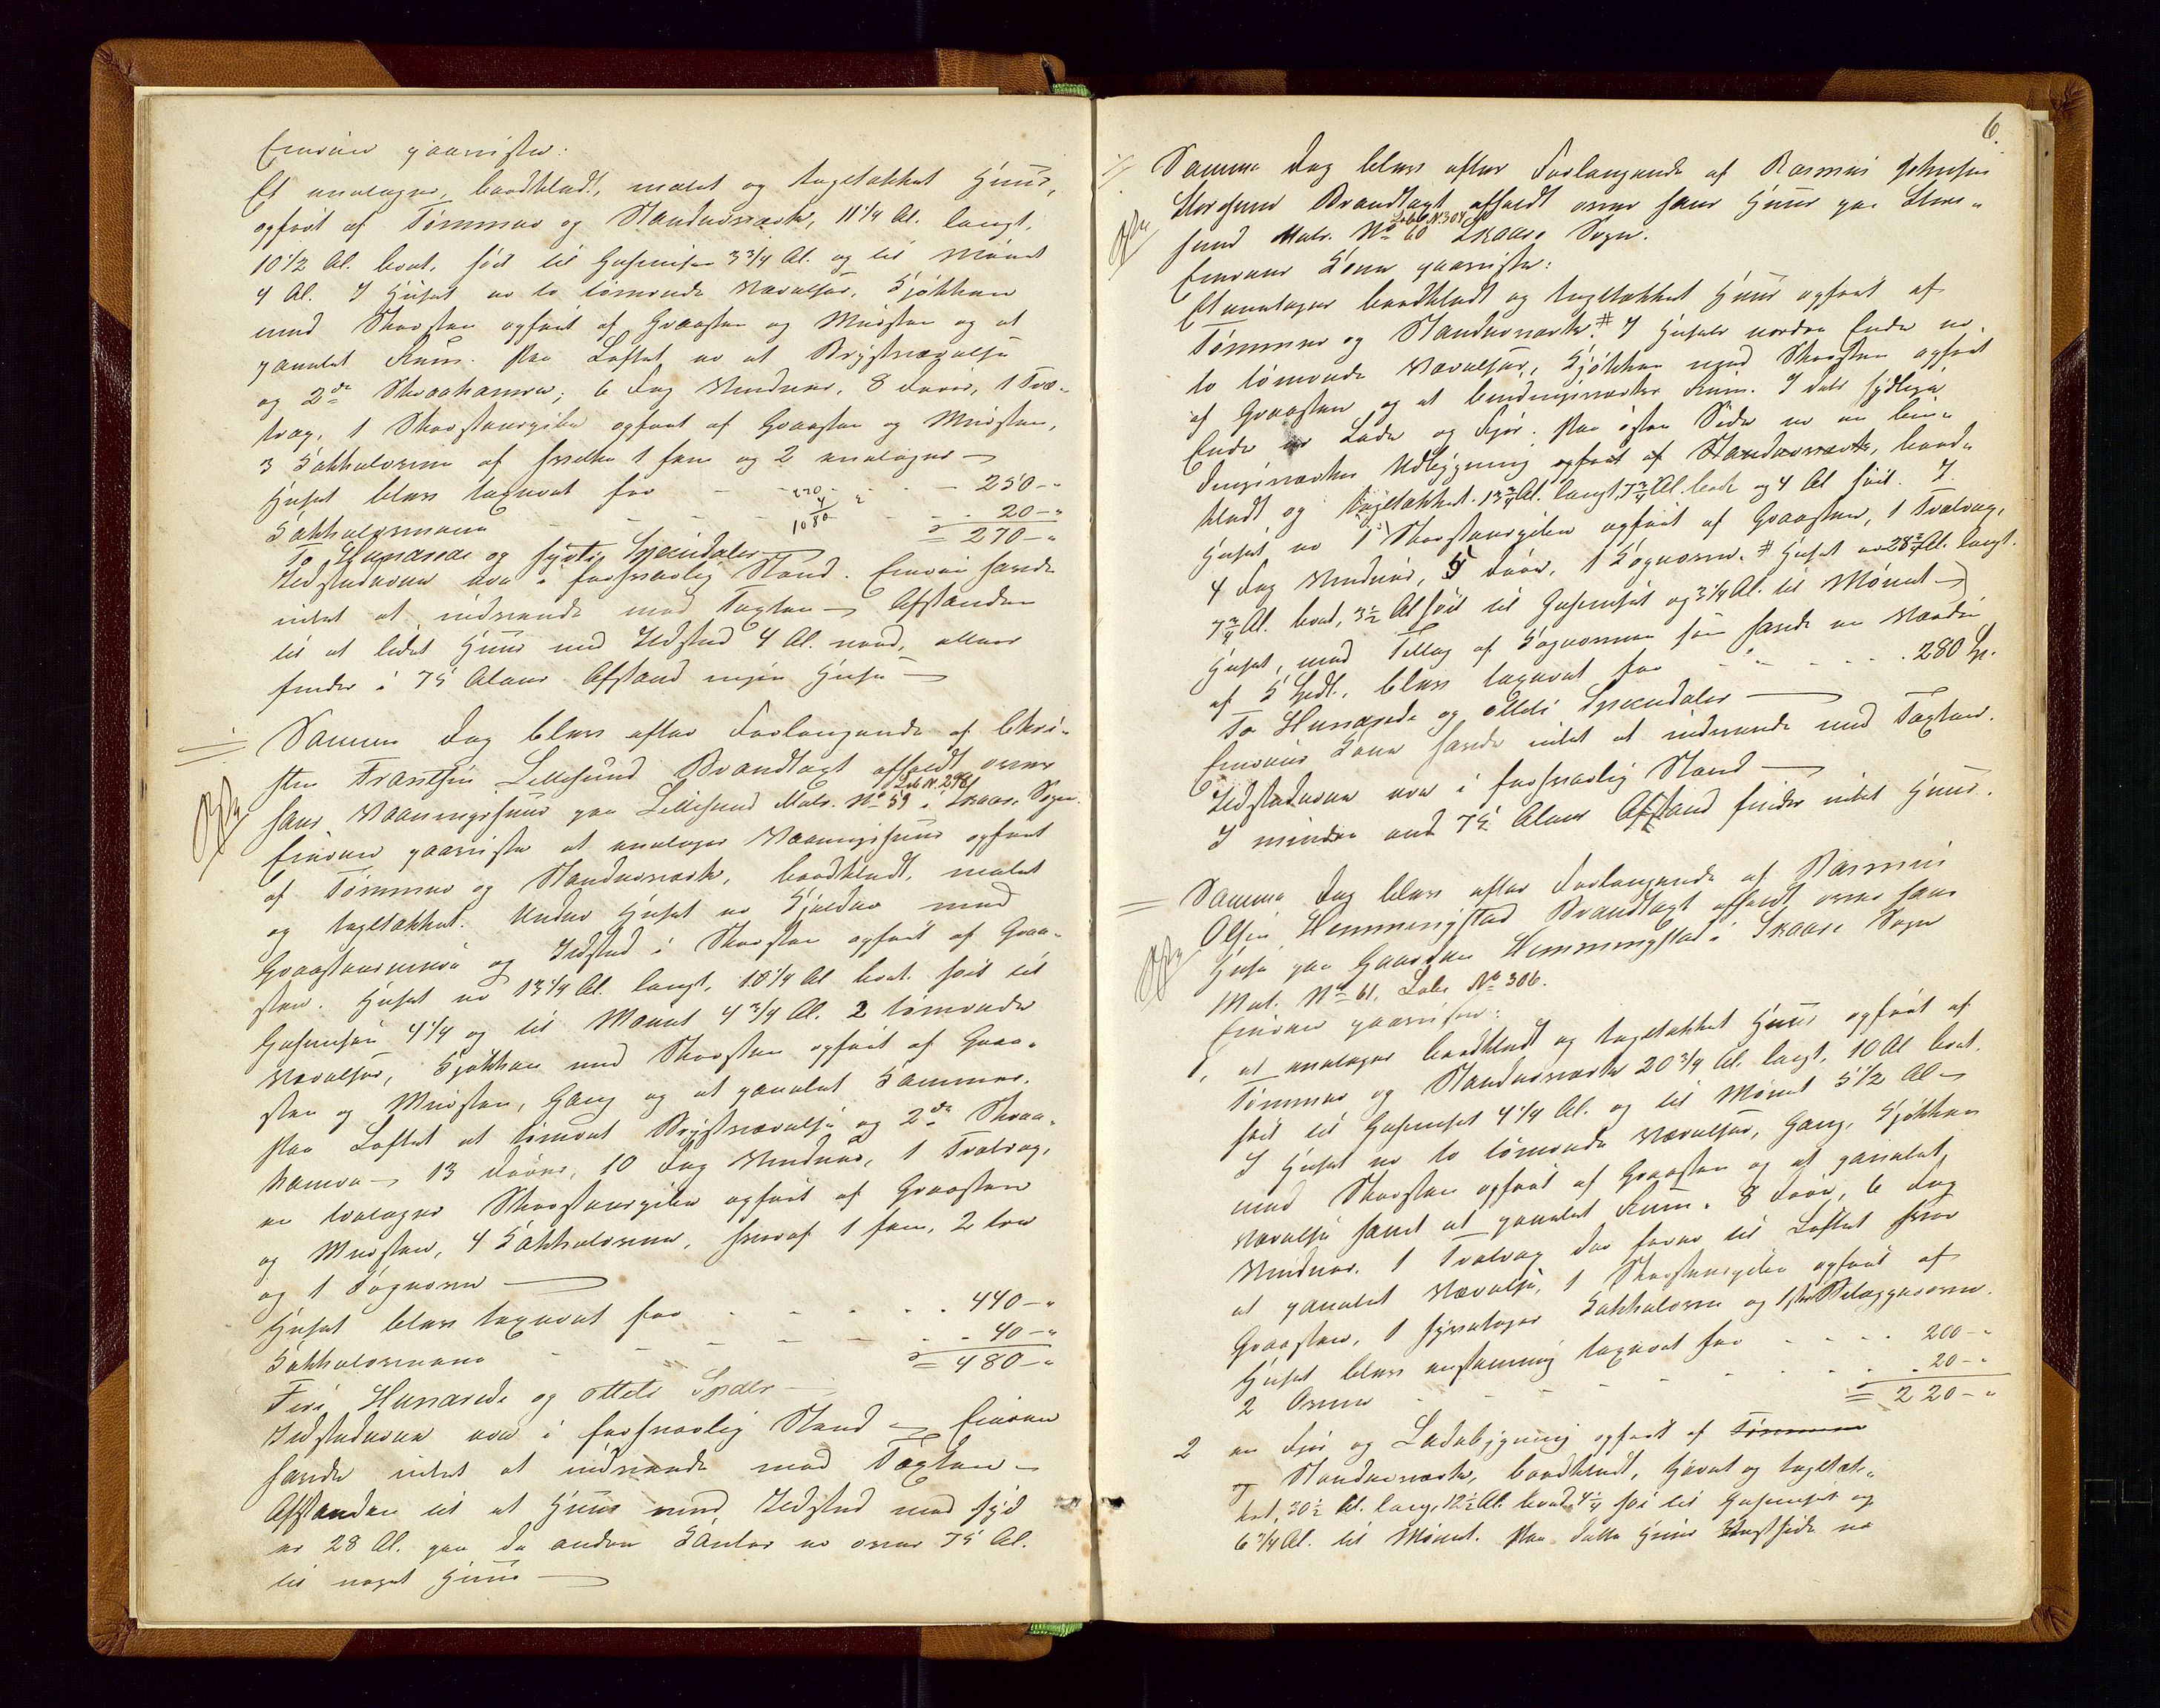 Eieren paaviste:
Et enetages, bordklædt, malet og tagteklækket Huus,
opført af Tømmer og Standerværk, 11 1/4 Al. langt,
10 1/2 Al. bredt, høit til Gesimsen 3 3/4 Al. og til Mønet
4 Al. I Huset er to tømrede Værelser, Kjøkken
med Skorsten opført af Graasten og Mursten og et
panelet Rum. Paa Loftet er et Brystværelse
og 2de Skraakamre; 6 Fag Vinduer, 8 Døre, 1 Træ-
trap, 1 Skorstenspibe opført af Graasten og Mursten,
3 Kakkelovne af hvilke 1 fem og 2 enetages –
Huset blev taxeret for - - - 250 - "
Kakkelovnene - - - 20 - "
= 270 - "
270
4
1080
To Hundrede og sytti Speciedaler
Ildstederne ere i forsvarlig Stand. Eieren havde
intet at indvende mod Taxten – Afstanden
til et lidet Huus med Ildsted 4 Al. nord, ellers
findes i 75 Alens Afstand ingen Huse –
Samme Dag blev efter Forlangende af Chri-
sten Frantsen Lillesund Brandtaxt afholdt over
Løb N. 298
hans Vaaningshuus paa Lillesund Matr. No 59 i Skaare Sogn.
Eieren paaviste et enetages Vaaningshuus opført
af Tømmer og Standerværk, bordklædt, malet
og tagteklækket. Under Huset er Kjelder med
Graastensmure og Ildsted i Skorsten opført af Graa-
sten. Huset er 13 1/4 Al. langt, 10 1/4 Al bredt. høit til
Gesimsen 4 1/4 og til Mønet 4 3/4 Al. 2 tømrede
Værelser, Kjøkken med Skorsten opført af Graa-
sten og Mursten, Gang og et panelet Kammer.
Paa Loftet et tømret Brystværelse og 2de Skraa-
kamre – 13 Døre, 10 Fag Vinduer, 1 Trætrap,
en toetages Skorstenspibe opført af Graasten
og Mursten, 4 Kakkelovne, hvoraf 1 fem, 2 tre
og 1 Bageovn
Huset blev taxeret for - - - 440 - "
Kakkelovnene - - - 40 - "
= 480 - "
Fire Hundrede og otteti Spdlr
Ildstederne ere i forsvarlig Stand – Eieren
havde intet at indvende mod Taxten –
Afstanden til et Huus med Ildsted mod Syd
er 28 Al. paa de andre Kanter er over 75 Al.
til noget Huus
6.
Samme Dag blev efter Forlangende af Rasmus Johnsen
Storesund Brandtaxt afholdt over hans Huus paa Store-
Løb N. 304
sund Matr. No 60 Skaare Sogn.
Eierens Kone paaviste:
Et enetages bordklædt og tagteklækket Huus opført af
Tømmer og Standerværk. # I Husets nordre Ende er
to tømrede Værelser, Kjøkken med Skorsten opført
af Graasten og et bindingsværks Rum. I dets sydlige
Ende er Lade og Fjøs. Paa østre Side er en bin-
dingsværkes Udbygning opført af Standerværk, bord-
klædt og tagteklækket. 13 3/4 Al. langt, 7 3/4 Al. bredt og 4 Al høit. I
Huset er 1 Skorstenspibe opført af Graasten, 1 Trætrap,
4 Fag Vinduer, 5 Døre, 1 Bageovn. # Huset er 28 3/4 Al. langt.
7 3/4 Al. bredt, 3 1/2 Al høit til Gesimset og 3 3/4 Al. til Mønet –
Huset, med Tillæg af Bageovnen som havde en Værdie
af 5 Spdl., blev taxeret for - - - 280 Sp.
To Hundrede og otteti Speciedaler
Eierens Kone havde intet at indvende mod Taxten.
Ildstederne ere i forsvarlig Stand
I mindre end 75 Alens Afstand findes intet Huus.
Samme Dag blev efter Forlangende af Rasmus
Olsen Hemmingstad Brandtaxt afholdt over hans
Huse paa Gaarden Hemmingstad i Skaare Sogn
Mat. No 61, Løbe No 306.
Eieren paaviste:
1, et enetages bordklædt og tagteklækket Huus opført af
Tømmer og Standerværk 20 3/4 Al. langt, 10 Al bredt.
høit til Gesimset 4 1/4 Al. og til Mønet 5 1/2 Al –
I Huset er to tømrede Værelser, Gang, Kjøkken
med Skorsten opført af Graasten og et panelet
Værelse samt et panelet Rum. 8 Døre, 6 Fag
Vinduer. 1 Trætrap der fører til Loftet hvor
et panelet Værelse, 1 Skorstenspibe opført af
Graasten, 1 fireetages Kakkelovn og 1 stor Bilæggerovn.
Huset blev enstemmig taxeret for - - - 200 - "
2 Ovne - - - 20 - "
= 220 - "
2 en Fjøs og Ladebygning opført af Tømmer
og Standerværk, bordklædt, tjæret og tagtek-
ket, 30 1/2 Al. lang, 12 1/2 Al. bred, 4 1/4 høi til Gesimset og
6 3/4 Al. til Mønet. Paa dette Huus Vestside er